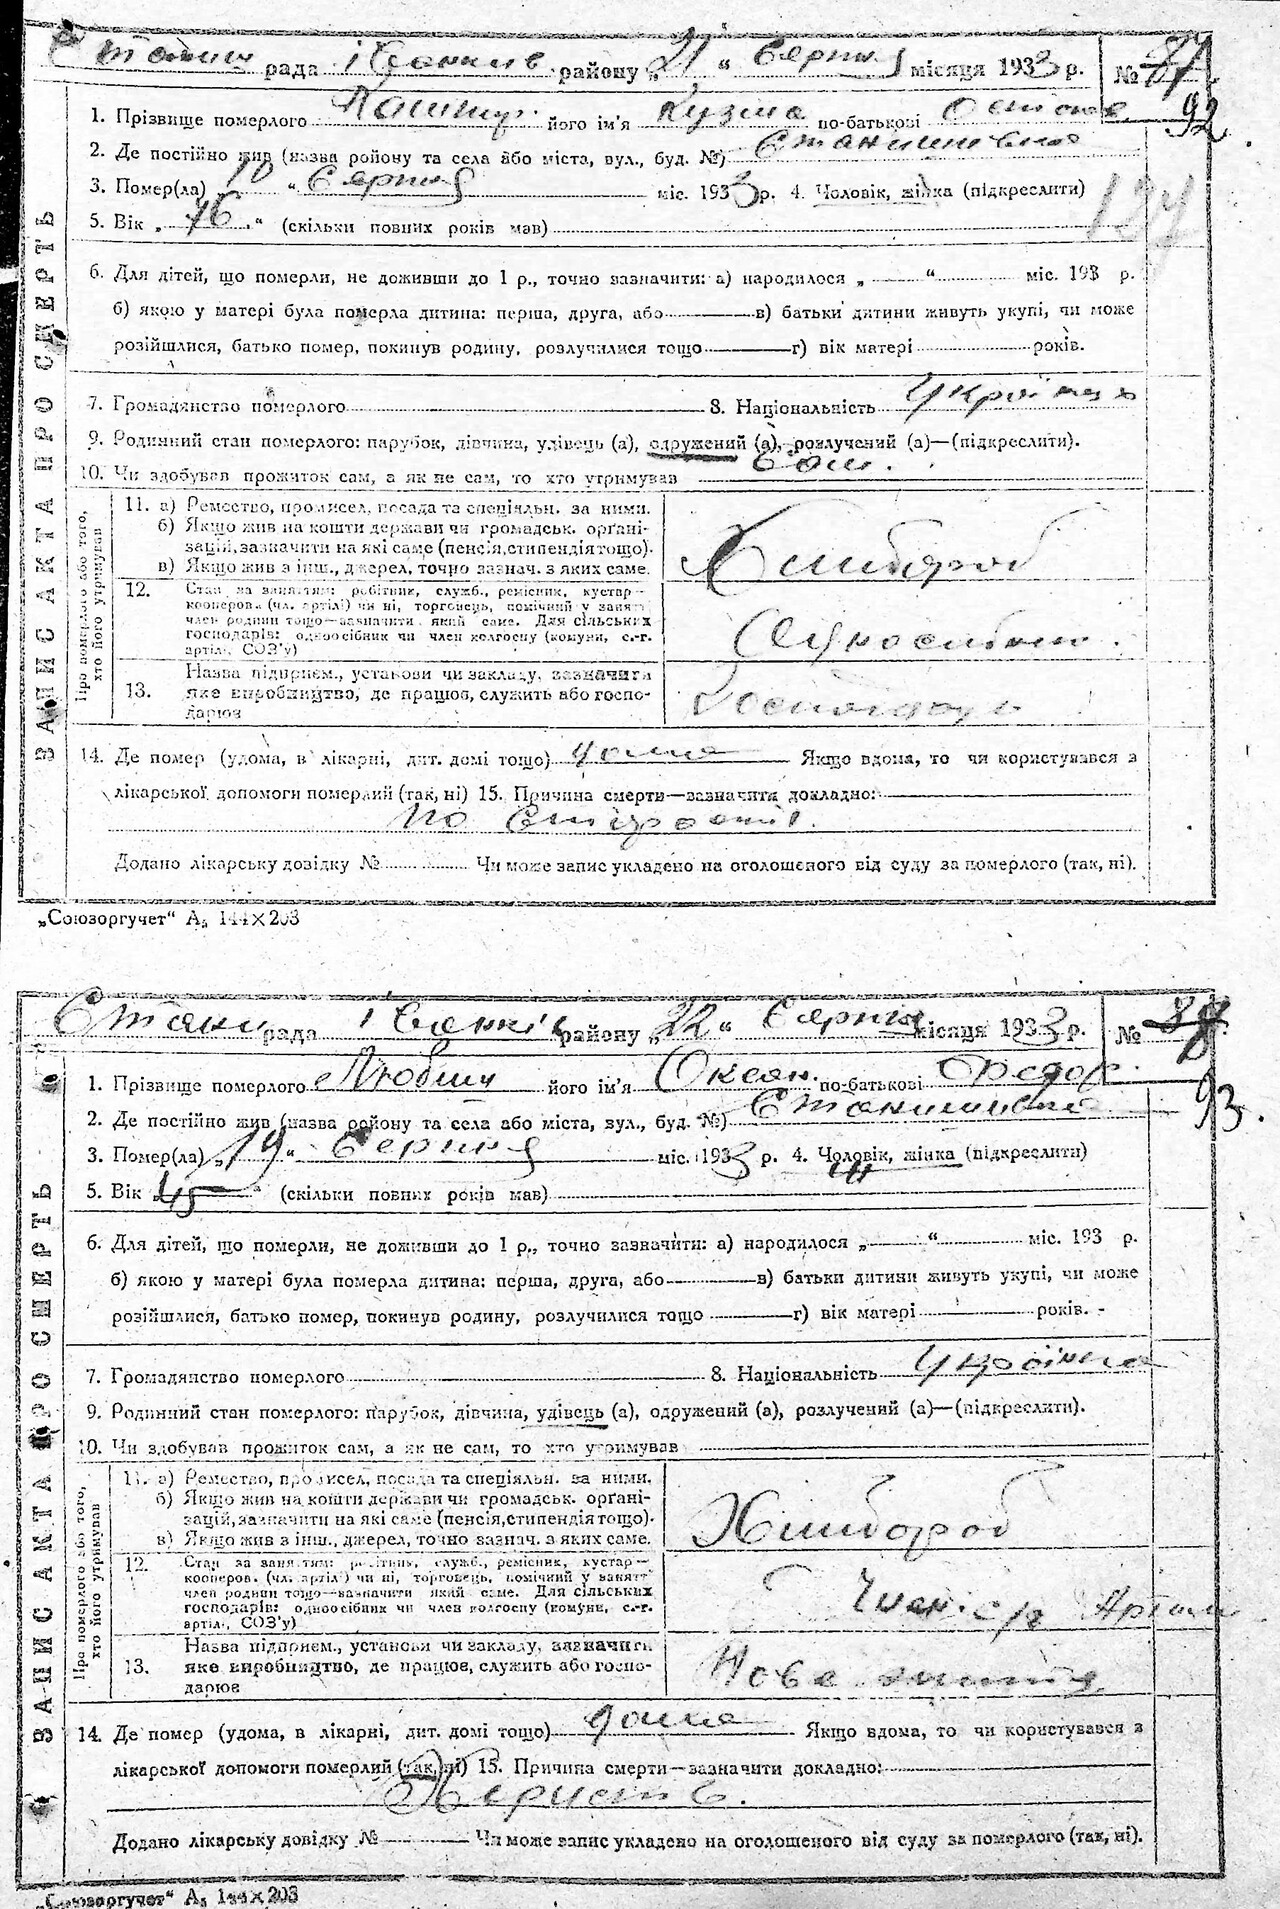 Станиш рада Іванків району „21“ Серпня місяця 1933 р. № 87
92
1. Прізвище померлого його ім'я Кузьма по-батькові
2. Де постійно жив (назва району та села або міста, вул., буд. №) Станишівка
3. Помер(ла) „10“ Серпня міс. 1933 р. 4. Чоловік, жінка (підкреслити)
5. Вік „76“ (скільки повних років мав)
6. Для дітей, що померли, не доживши до 1 р., точно зазначити: а) народилося „ “ міс. 193 р.
б) якою у матері була померла дитина: перша, друга, або в) батьки дитини живуть укупі, чи може
розійшлися, батько помер, покинув родину, розлучилися тощо г) вік матері років.
7. Громадянство померлого 8. Національність Українець
9. Родинний стан померлого: парубок, дівчина, удівець (а), одружений (а), розлучений (а)—(підкреслити).
10. Чи здобував прожиток сам, а як не сам, то хто утримував Сам.
ЗАПИС АКТА ПРО СМЕРТЬ
Про померлого або того, хто його утримував
11. а) Ремество, промисел, посада та спеціяльн. за ними.
б) Якщо жив на кошти держави чи громадськ. органі-
зацій, зазначити на які саме (пенсія, стипендія тощо).
в) Якщо жив з інш., джерел, точно зазнач. з яких саме.
Хлібороб
12. Стан за заняттям: робітник, служб., ремісник, кустар—
кооперов. (чл. артілі) чи ні, торговець, помічний у занятт
член родини тощо—зазначити який саме. Для сільських
господарів: одноосібник чи член колгоспу (комуни, с.-г.
артілі, СОЗ'у)
13. Назва підприєм., установи чи закладу, зазначити
яке виробництво, де працює, служить або госпо-
дарює
14. Де помер (удома, в лікарні, дит. домі тощо) дома Якщо вдома, то чи користувався з
лікарської допомоги померлий (так, ні) 15. Причина смерти—зазначити докладно:
По старости.
Додано лікарську довідку № Чи може запис укладено на оголошеного від суду за померлого (так, ні).
„Союзоргучет“ А₅ 144×203
Стани рада Іванків району „22“ Серпня місяця 1933 р. №
93.
1. Прізвище померлого його ім'я Оксен. по-батькові Федор.
2. Де постійно жив (назва району та села або міста, вул., буд. №) Станишівка
3. Помер(ла) „19“ Серпня міс. 1933 р. 4. Чоловік, жінка (підкреслити)
5. Вік „45“ (скільки повних років мав)
6. Для дітей, що померли, не доживши до 1 р., точно зазначити: а) народилося „ “ міс. 193 р.
б) якою у матері була померла дитина: перша, друга, або в) батьки дитини живуть укупі, чи може
розійшлися, батько помер, покинув родину, розлучилися тощо г) вік матері років.
7. Громадянство померлого 8. Національність
9. Родинний стан померлого: парубок, дівчина, удівець (а), одружений (а), розлучений (а)—(підкреслити).
10. Чи здобував прожиток сам, а як не сам, то хто утримував
ЗАПИС АКТА ПРО СМЕРТЬ
Про померлого або того, хто його утримував
11. а) Ремество, промисел, посада та спеціяльн. за ними.
б) Якщо жив на кошти держави чи громадськ. органі-
зацій, зазначити на які саме (пенсія, стипендія тощо).
в) Якщо жив з інш., джерел, точно зазнач. з яких саме.
Хлібороб
12. Стан за заняттям: робітник, служб., ремісник, кустар—
кооперов. (чл. артілі) чи ні, торговець, помічний у занятт
член родини тощо—зазначити який саме. Для сільських
господарів: одноосібник чи член колгоспу (комуни, с.-г.
артілі, СОЗ'у)
Член с/г Артіли
13. Назва підприєм., установи чи закладу, зазначити
яке виробництво, де працює, служить або госпо-
дарює
Нове життя
14. Де помер (удома, в лікарні, дит. домі тощо) дома Якщо вдома, то чи користувався з
лікарської допомоги померлий (так, ні) 15. Причина смерти—зазначити докладно:
Додано лікарську довідку № Чи може запис укладено на оголошеного від суду за померлого (так, ні).
„Союзоргучет“ А₅ 144×203